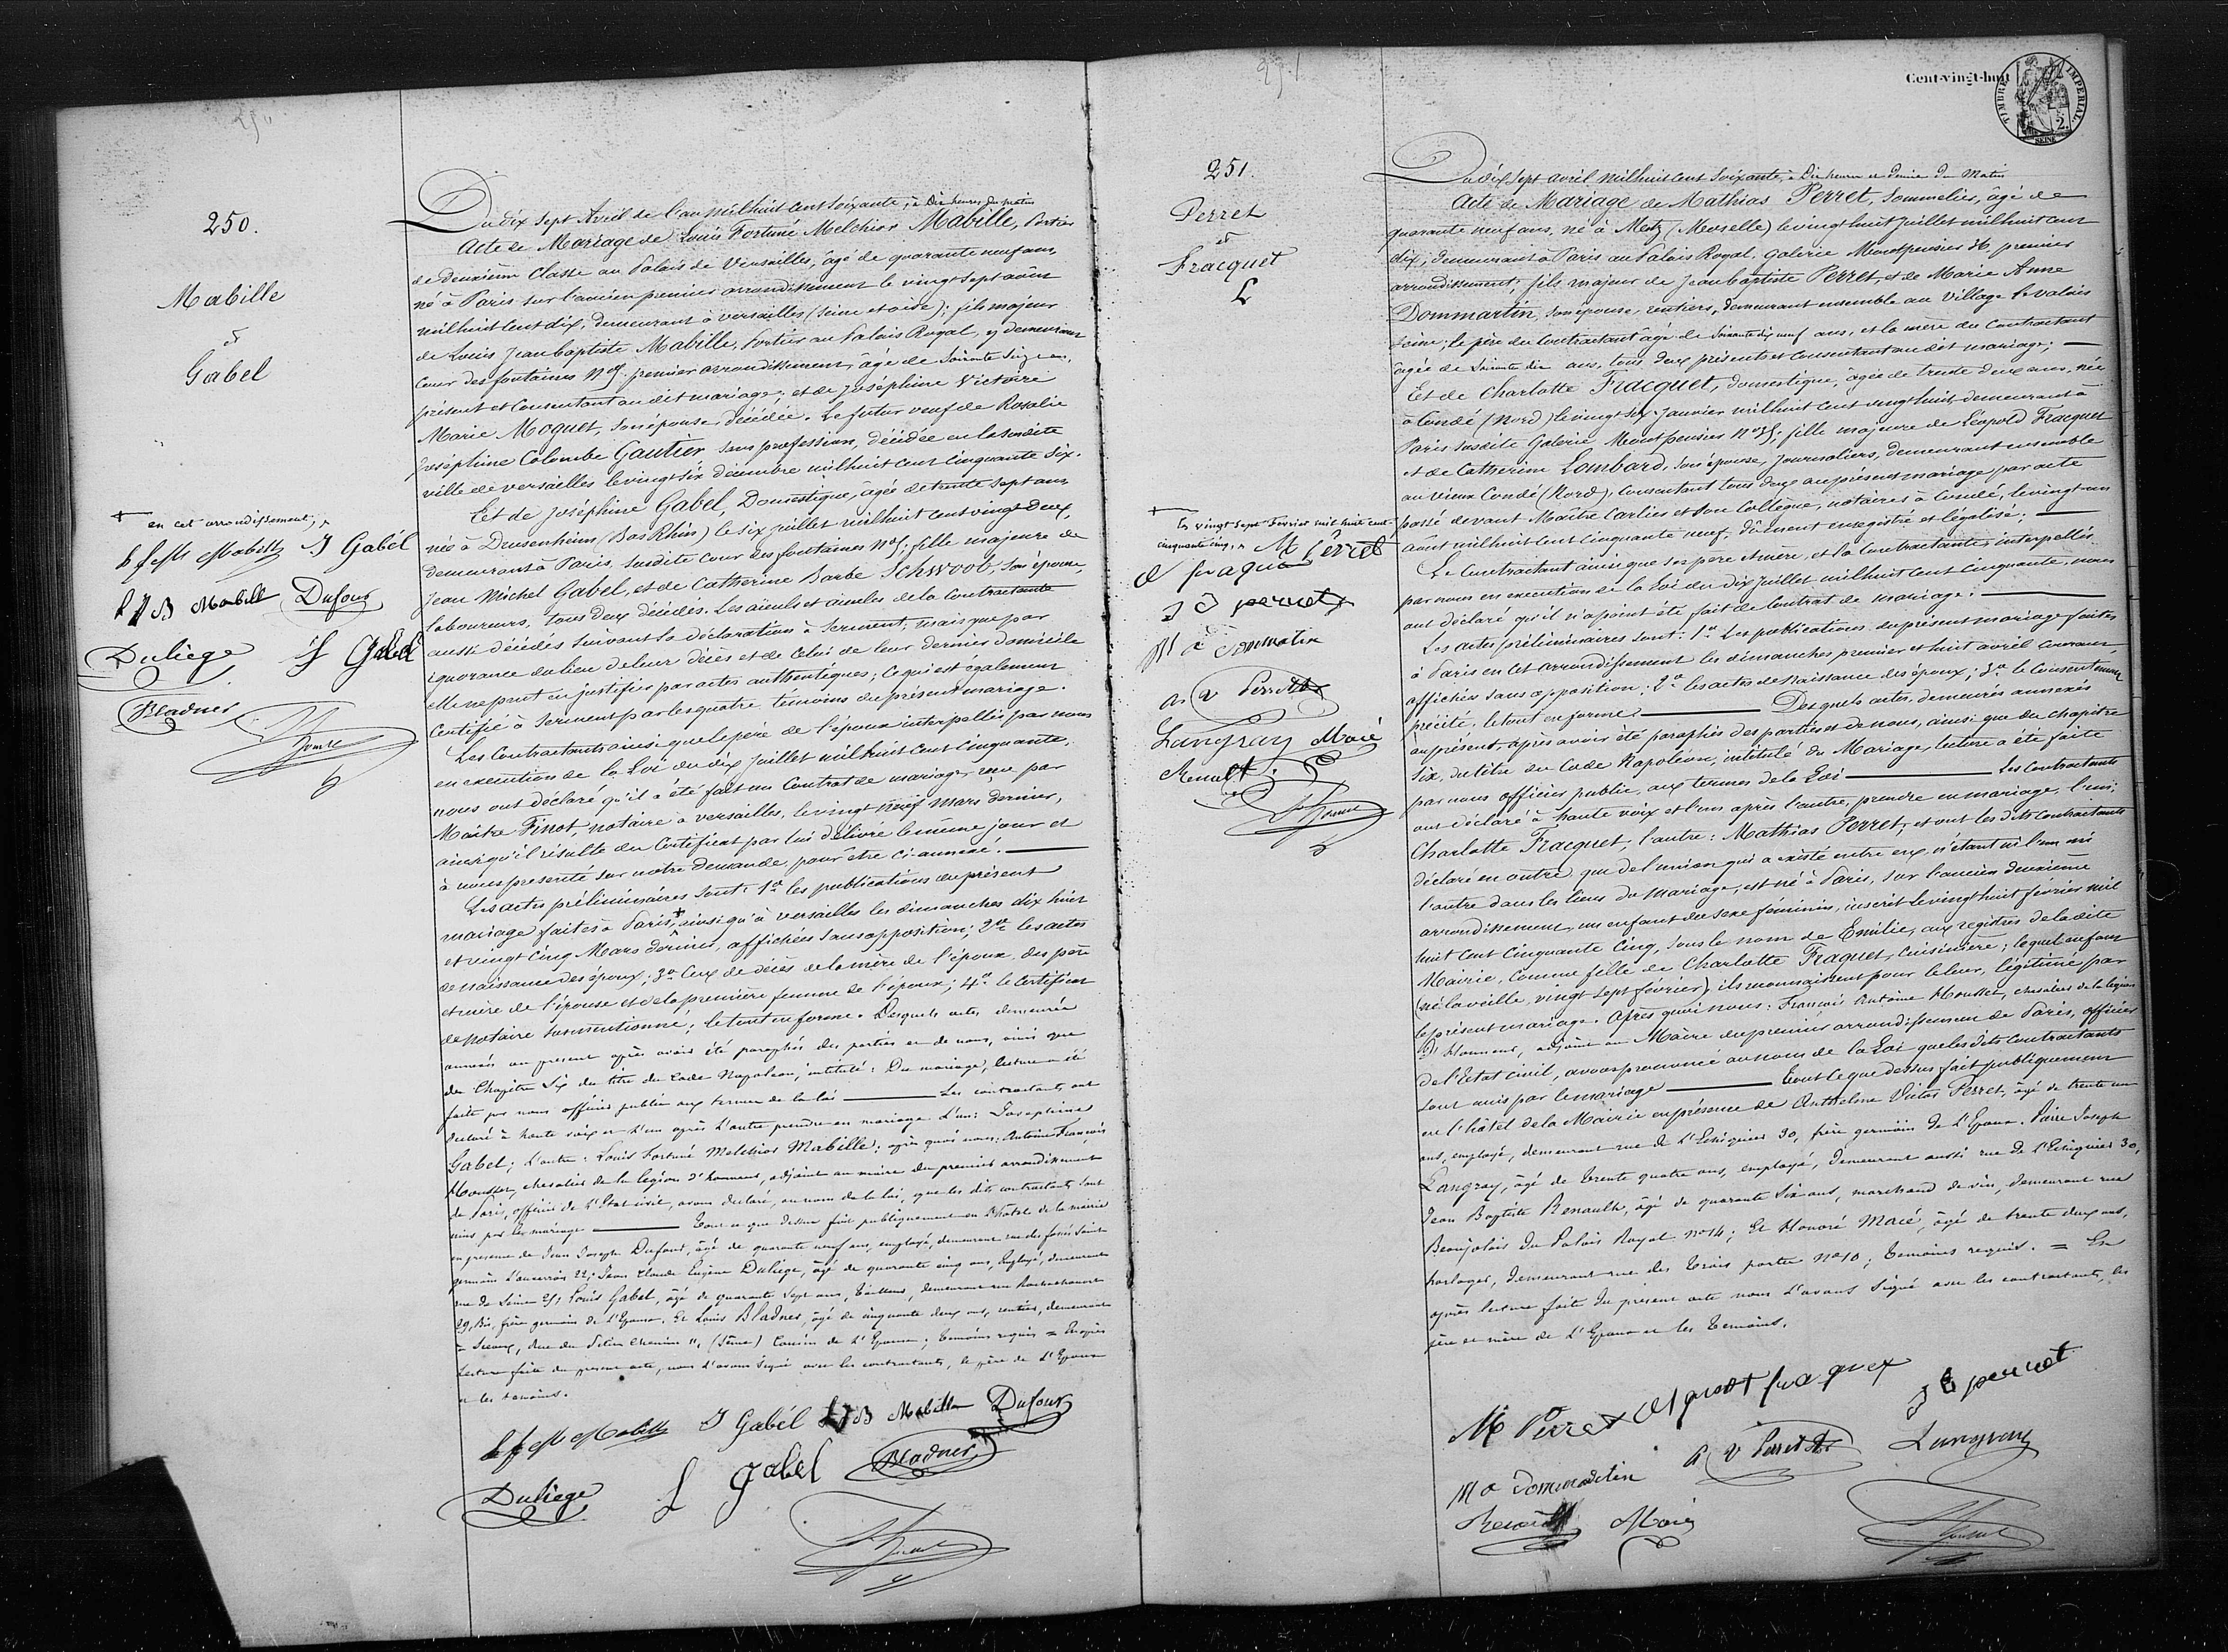 250.
Mabille
&
Gabel
Du dix Sept Avril de l'an milhuit cent soixante, à Dix heures du matin
Acte de Mariage de Louis Fortuné Melchior Mabille, Portier
de deuxième Classe au Palais de Versailles, âgé de quarante neuf ans,
né à Paris sur l'ancien premier arrondissement le vingt sept août
milhuit cent dix, demeurant à versailles (seine et oise); fils majeur
de Louis Jean baptiste Mabille, Portier au Palais Royal, y demeurant
Cour des fontaines No 5 premier arrondissement, âgé de Soixante Seize ans,
présent et Consentant au dit mariage; et de Joséphine Victoire
Marie Moquet, son épouse, décédée. Le futur veuf de Rosalie
Joséphine Colombe Gautier sans profession, décédée en la susdite
ville de versailles le vingt six décembre milhuit cent Cinquante Six.
Et de Joséphine Gabel, Domestique, âgée de trente sept ans,
née à Drusenheim (Bas Rhin) le six juillet milhuit cent vingt deux,
demeurant à Paris, susdite Cour des fontaines No 5; fille majeure de
Jean Michel Gabel, et de Catherine Barbe Schwoob, son épouse,
laboureurs, tous deux décédés. Les aïeuls et aïeules de la Contractante
aussi décédés suivant sa déclaration à Serment, mais que par
ignorance du lieu de leur décès et de celui de leur dernier domicile
elle ne peut en justifier par actes authentiques; ce qui est également
Certifié à Serment par les quatre témoins du présent mariage.
Les Contractants ainsi que le père de l'époux interpellés par nous
en exécution de la Loi du dix juillet milhuit cent Cinquante,
nous ont déclaré qu'il a été fait un Contrat de mariage, reçu par
Maître Finot, notaire à versailles, le vingt neuf mars dernier,
ainsi qu'il résulte du Certificat par lui délivré le même jour et
à nous présenté sur notre demande, pour être ci-annexé.
Les actes préliminaires sont: 1o les publications du présent
mariage faites à Paris + ainsi qu'à versailles les dimanches dix huit
et vingt Cinq Mars dernier, affichées sans opposition; 2o les actes
de naissance des époux; 3o Ceux de décès de la mère de l'époux, des père
et mère de l'épouse et de la première femme de l'époux; 4o le Certificat
de notaire susmentionné; le tout en forme. Desquels actes demeurés
annexés au present après avoir été paraphés des parties et de nous, ainsi que
du Chapitre Six du titre du Code Napoléon, intitulé: Du mariage, lecture a été
faite par nous officier public aux termes de la loi Les contractants ont
declaré à haute voix et l'un après l'autre prendre en mariage L'un: Josephine
Gabel; L'autre: Louis Fortuné Melchior Mabille; après quoi nous: Antoine François
Housset, chevalier de la légion d'honneur, adjoint au maire du premier arrondissement
de Paris, officier de l'Etat civil, avons declaré, au nom de la loi, que les dits contractants sont
unis par le mariage Tout ce que dessus fait publiquement en L'hôtel de la mairie
en presence de Jean Joseph Dufour, âgé de quarante neuf ans, employé, demeurant rue des fossés Saint
germain L'auxerrois 22; Jean Claude Eugène Duliège, âgé de quarante cinq ans, Employé, demeurant
rue de Seine 25; Louis Gabel, âgé de quarante Sept ans, Tailleur, demeurant rue Rochechouart
29, Bis, frère germain de L'Epouse. Et Louis Bladner, âgé de cinquante deux ans, rentier, demeurant
à Sceaux, Rue du Petit Chemin 11, (Seine) Cousin de L'Epouse; témoins requis = Et après
lecture faite du present acte, nous L'avons signé avec les contractants, le père de L'Epoux
et les témoins.
+ en cet arrondissement,
L f M Mabille J Gabél
L J B Mabille Dufour
Duliege L Gabel
Bladner
L f M Mabille J Gabél L J B Mabille Dufour
Duliege L Gabel Bladner
Cent-vingt-huit
TIMBRE IMPERIAL
2.
SEINE
251.
Perret
et
Fracquet
L
Du dix Sept avril milhuit cent soixante, à Dix heures et demie du Matin
Acte de Mariage de Mathias Perret, Sommelier, âgé de
quarante neuf ans, né à Metz (Moselle) le vingt huit juillet milhuit cent
dix; demeurant à Paris au Palais Royal, Galerie Montpensier 36 premier
arrondissement; fils majeur de Jean baptiste Perret, et de Marie Anne
Dommartin, son épouse, rentiers, demeurant ensemble au Village Levalois
Seine; le père du Contractant âgé de Soixante dix neuf ans, et la mère du Contractant
âgée de Soixante dix ans, tous deux présents et consentant au dit mariage;
Et de Charlotte Fracquet, domestique, âgée de trente deux ans, née
à Condé (Nord) le vingt six Janvier milhuit cent vingt huit, demeurant à
Paris susdite Galerie Montpensier No 35; fille majeure de Léopold Fracquet
et de Catherine Lombard, son épouse, Journaliers, demeurant ensemble
au vieux Condé (Nord), Consentant tous deux au présent mariage par acte
passé devant Maître Carlier et Son Collègue, notaires à Condé, le vingt un
août milhuit cent Cinquante neuf, dûment enregistré et légalisé;
Le Contractant ainsi que ses père et mère, et la Contractante, interpellés
par nous en exécution de la Loi du dix juillet milhuit cent Cinquante, nous
ont déclaré qu'il n'a point été fait de Contrat de mariage;
Les actes préliminaires sont: 1o Les publications du présent mariage faites
à Paris en cet arrondissement les dimanches premier et huit avril courant,
affichées sans opposition; 2o les actes de Naissance des époux; 3o le Consentement
précité, le tout en forme. Desquels actes, demeurés annexés
au présent, après avoir été paraphés des parties et de nous, ainsi que du chapitre
Six, du titre du Code Napoléon, intitulé du Mariage, lecture a été faite
par nous officier public, aux termes de la Loi Les Contractants
ont déclaré à haute voix et l'un après l'autre, prendre en mariage, l'un:
Charlotte Fracquet, l'autre: Mathias Perret; et ont les dits Contractants
déclaré en outre que de l'union qui a existé entre eux, n'étant ni l'un ni
l'autre dans les liens du mariage, est né à Paris, sur l'ancien deuxième
arrondissement, un enfant du sexe féminin, inscrit le vingt huit février mil
huit cent Cinquante Cinq, sous le nom de Emilie, aux registres de la dite
Mairie, comme fille de Charlotte Fraquet, Cuisinière; lequel enfant
(né la veille, vingt sept février), ils reconnaissent pour le leur, légitimé par
le présent mariage. Après quoi nous: François Antoine Housset, chevalier de la légion
d'Honneur, adjoint au Maire du premier arrondissement de Paris, officier
de l'Etat civil, avons prononcé au nom de la Loi que les dits Contractants
sont unis par le mariage Tout ce que dessus fait publiquement
en l'hôtel de la Mairie en présence de Anthelme Victor Perret, âgé de trente un
ans, employé, demeurant rue de L'Echiquier 30, frère germain de L'Epoux. Joseph
Langray, âgé de trente quatre ans, employé, Demeurant aussi rue de l'Echiquier 30,
Jean Baptiste Renault, âgé de quarante Six ans, marchand de vin, demeurant rue
Beaujolais du Palais Royal no 14; Et Honoré Macé, âgé de trente deux ans,
horloger, demeurant rue des Trois portes No 10; témoins requis. = Et
après lecture faite du présent acte nous L'avons Signé avec les contractants, les
père et mère de L'Epoux et les temoins.
+ Le vingt sept Fevrier mil huit cent
cinquante cinq, M Perret
J B perret
M a Dommartin
a v Perret
Langray Macé
Renault
M Perret J B perret
M a Dommartin a v Perret Langray
Renault Macé